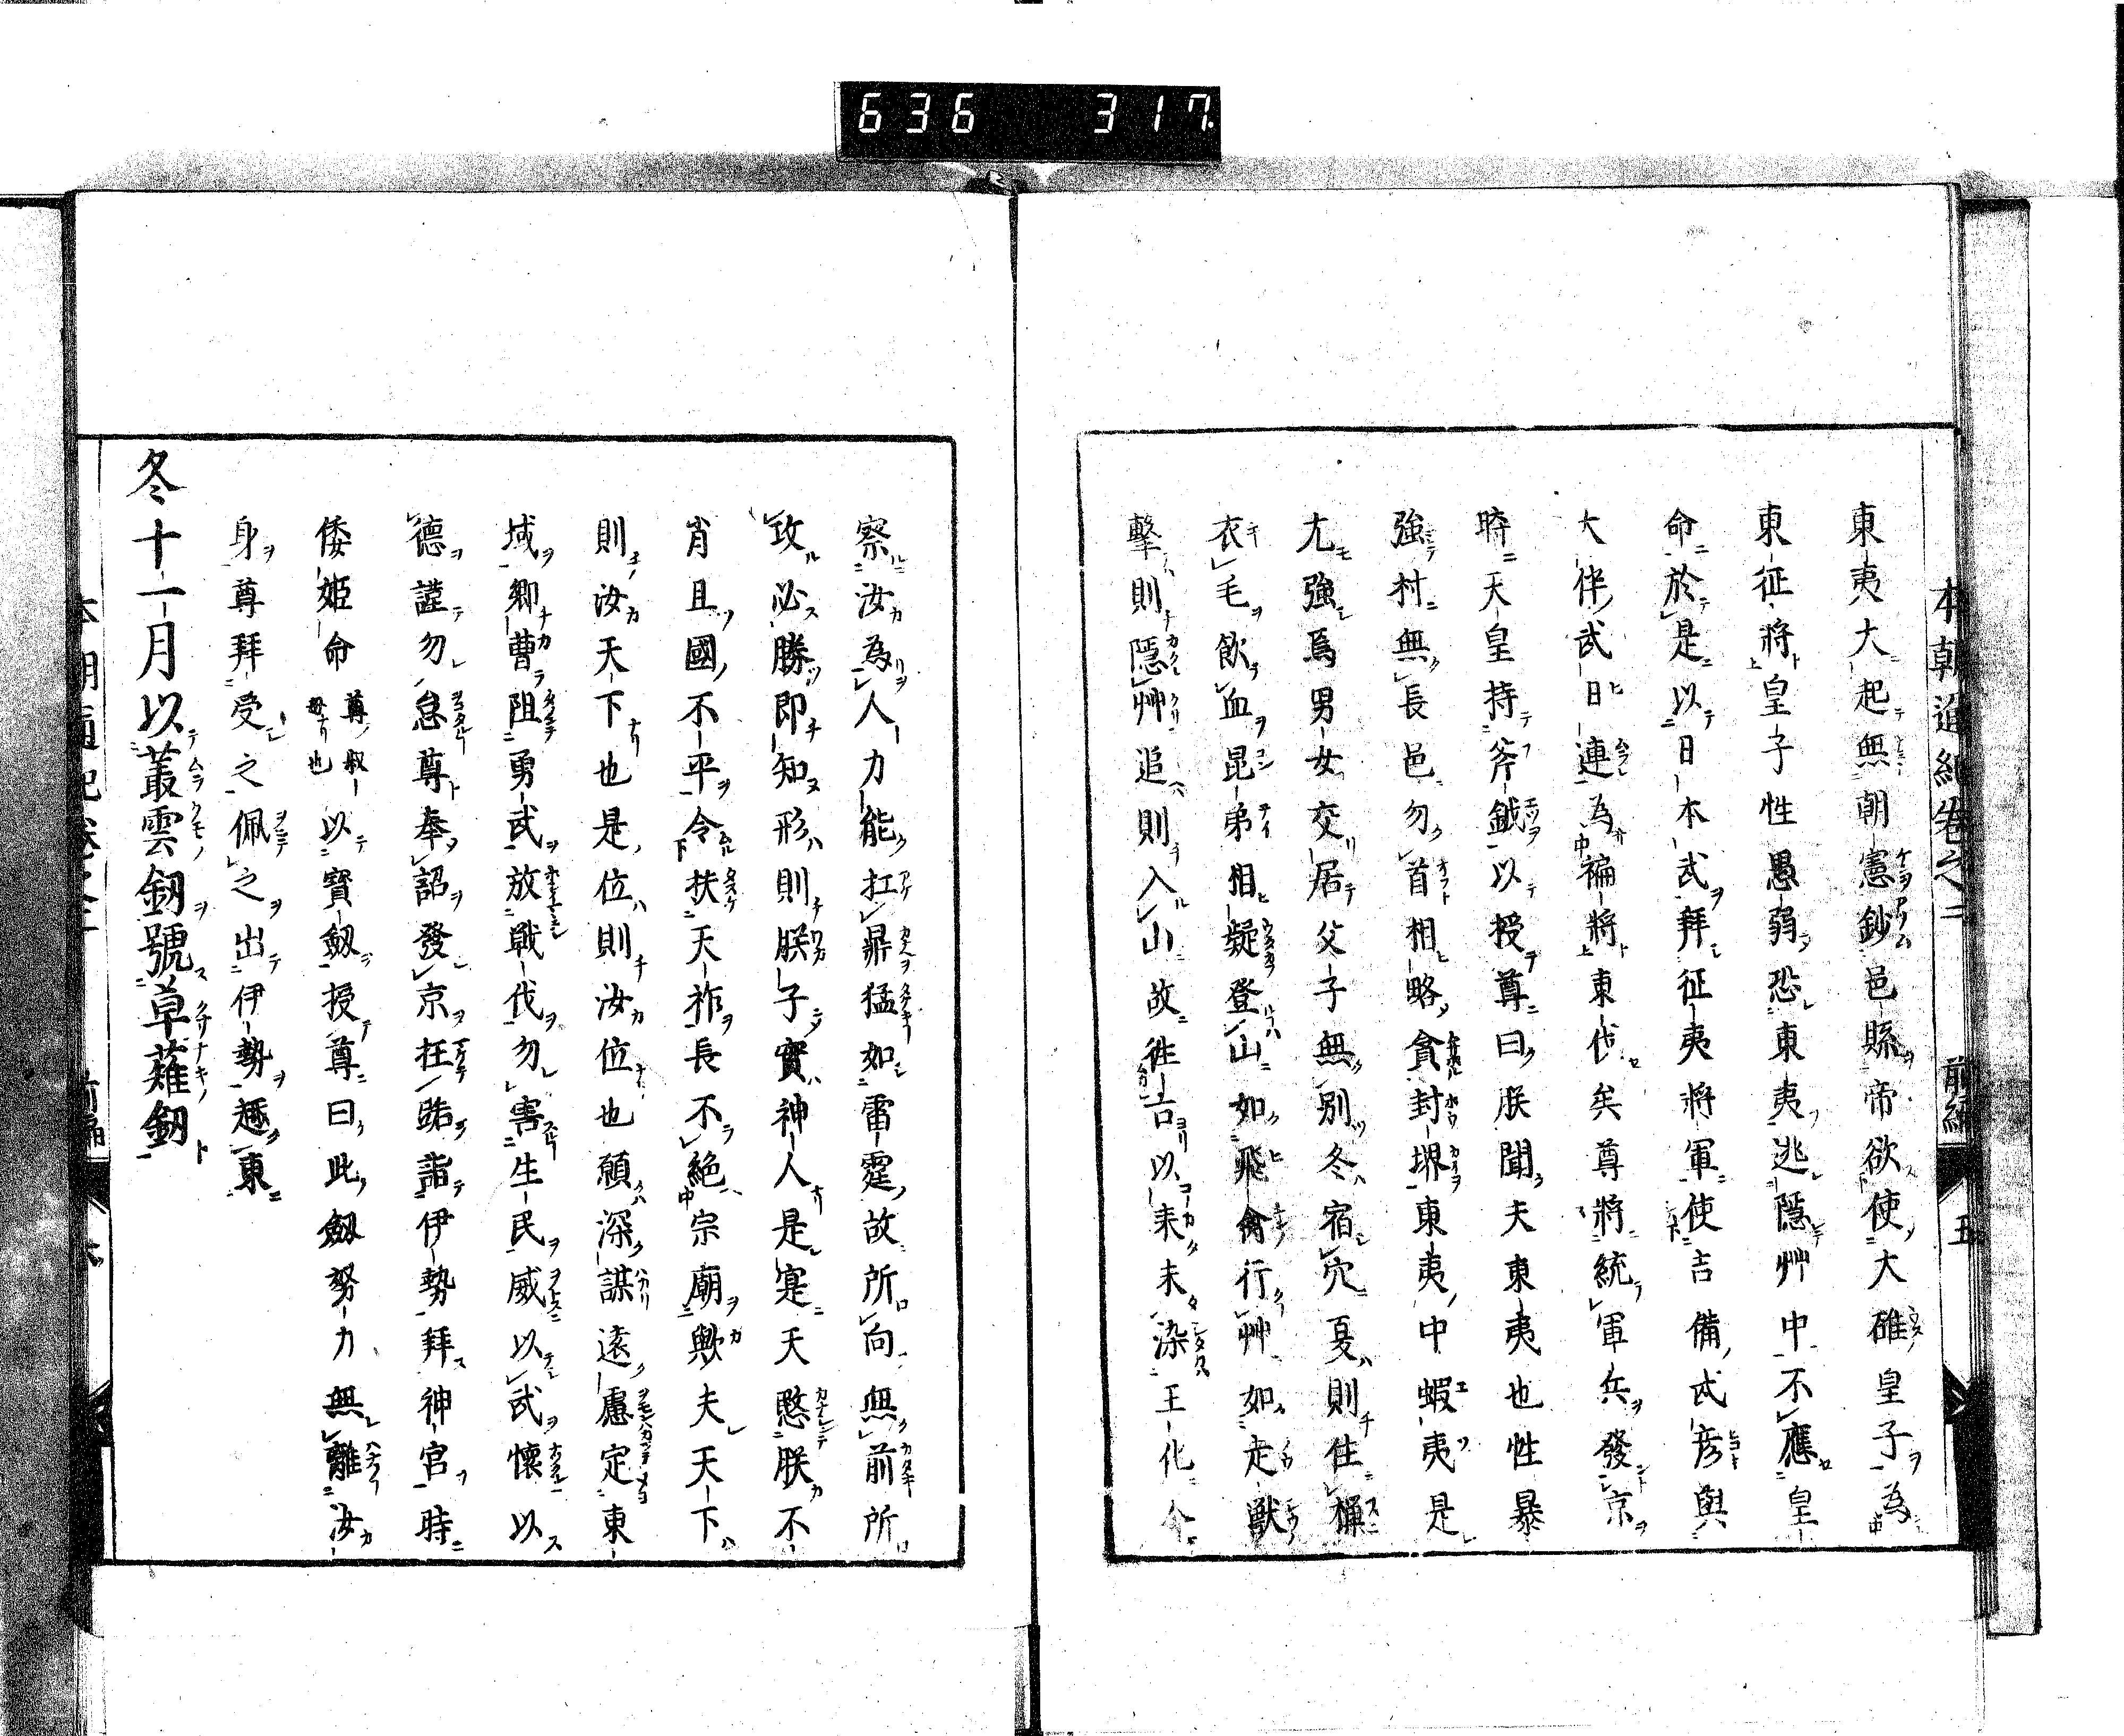 636 317
本朝通紀卷之二 前編 五
東夷大起無朝憲鈔邑縣帝欲使大碓皇子為
東征將皇子性愚弱恐東夷逃隱艸中不應皇
命於是以日本武拜征夷將軍使吉備武彦與
大伴武日連為褊將東伐矣尊將統軍兵發京
時天皇持斧鉞以授尊曰朕聞夫東夷也性暴
強村無長邑勿首相略貪封堺東夷中蝦夷是
尤強焉男女交居父子無別冬宿穴夏則住樔
衣毛飲血昆弟相疑登山如飛禽行艸如走獸
擊則隱艸追則入山故徃古以来未染王化今
察汝為人力能扛鼎猛如雷霆故所向無前所
攻必勝即知形則朕子實神人是寔天愍朕不
肖且國不平令扶天祚長不絶宗廟歟夫天下
則汝天下也是位則汝位也願深謀遠慮定東
域卿曹阻勇武放戰伐勿害生民威以武懷以
德謹勿怠尊奉詔發京抂路詣伊勢拜神宮時
倭姬命尊叔母也以寳劔授尊曰此劔努力無離汝
身尊拜受之佩之出伊勢趣東
冬十一月以叢雲劔號草薙劔
本朝通紀卷之二 前編 六